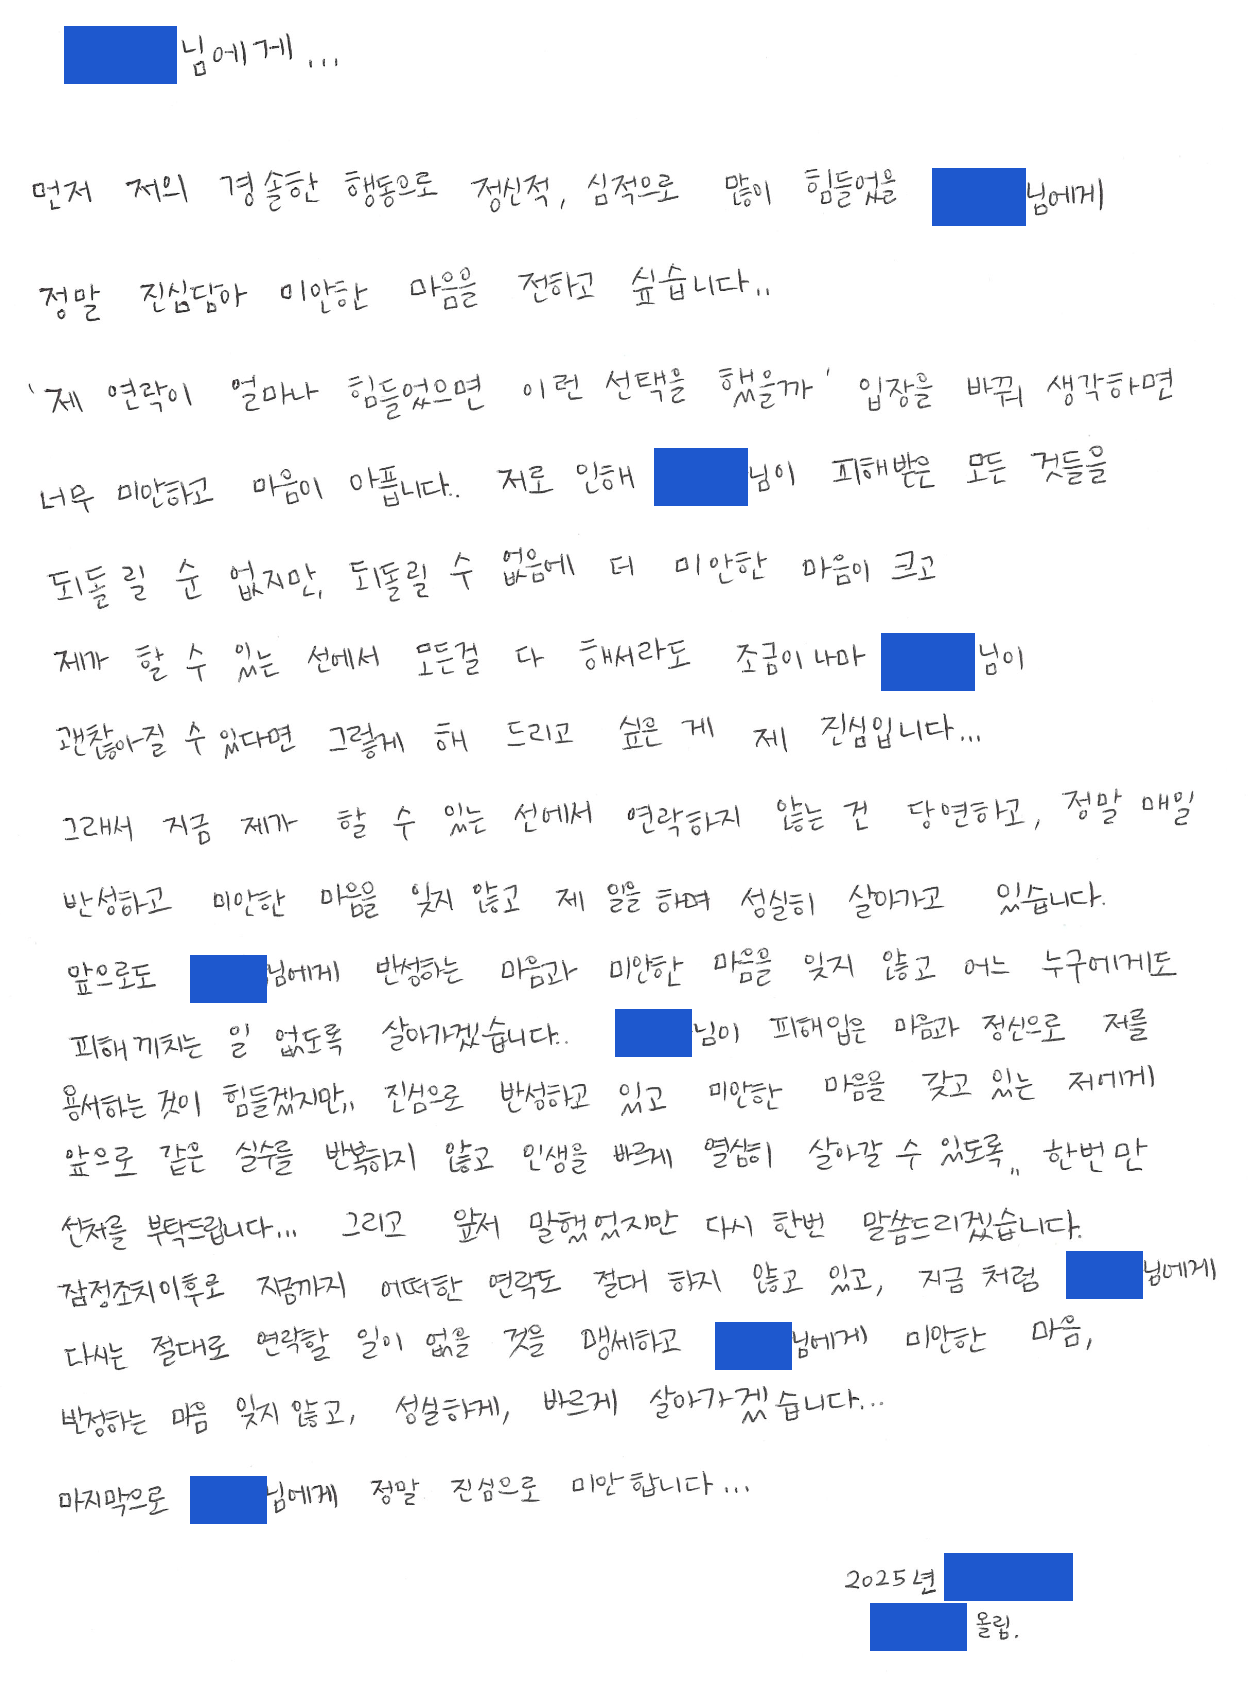 님에게...
먼저 저의 경솔한 행동으로 정신적, 심적으로 많이 힘들었을 님에게
정말 진심담아 미안한 마음을 전하고 싶습니다..
'제 연락이 얼마나 힘들었으면 이런 선택을 했을까' 입장을 바꿔 생각하면
너무 미안하고 마음이 아픕니다.. 저로 인해 님이 피해받은 모든 것들을
되돌릴 순 없지만, 되돌릴 수 없음에 더 미안한 마음이 크고
제가 할 수 있는 선에서 모든걸 다 해서라도 조금이나마 님이
괜찮아질 수 있다면 그렇게 해 드리고 싶은 게 제 진심입니다...
그래서 지금 제가 할 수 있는 선에서 연락하지 않는 건 당연하고, 정말 매일
반성하고 미안한 마음을 잊지 않고 제 일을 하며 성실히 살아가고 있습니다.
앞으로도 님에게 반성하는 마음과 미안한 마음을 잊지 않고 어느 누구에게도
피해 끼치는 일 없도록 살아가겠습니다.. 님이 피해입은 마음과 정신으로 저를
용서하는 것이 힘들겠지만,, 진심으로 반성하고 있고 미안한 마음을 갖고 있는 저에게
앞으로 같은 실수를 반복하지 않고 인생을 바르게 열심히 살아갈 수 있도록,, 한번만
선처를 부탁드립니다... 그리고 앞서 말했었지만 다시 한번 말씀드리겠습니다.
잠정조치이후로 지금까지 어떠한 연락도 절대 하지 않고 있고, 지금 처럼 님에게
다시는 절대로 연락할 일이 없을 것을 맹세하고 님에게 미안한 마음,
반성하는 마음 잊지 않고, 성실하게, 바르게 살아가겠습니다...
마지막으로 님에게 정말 진심으로 미안합니다...
2025년
올림.